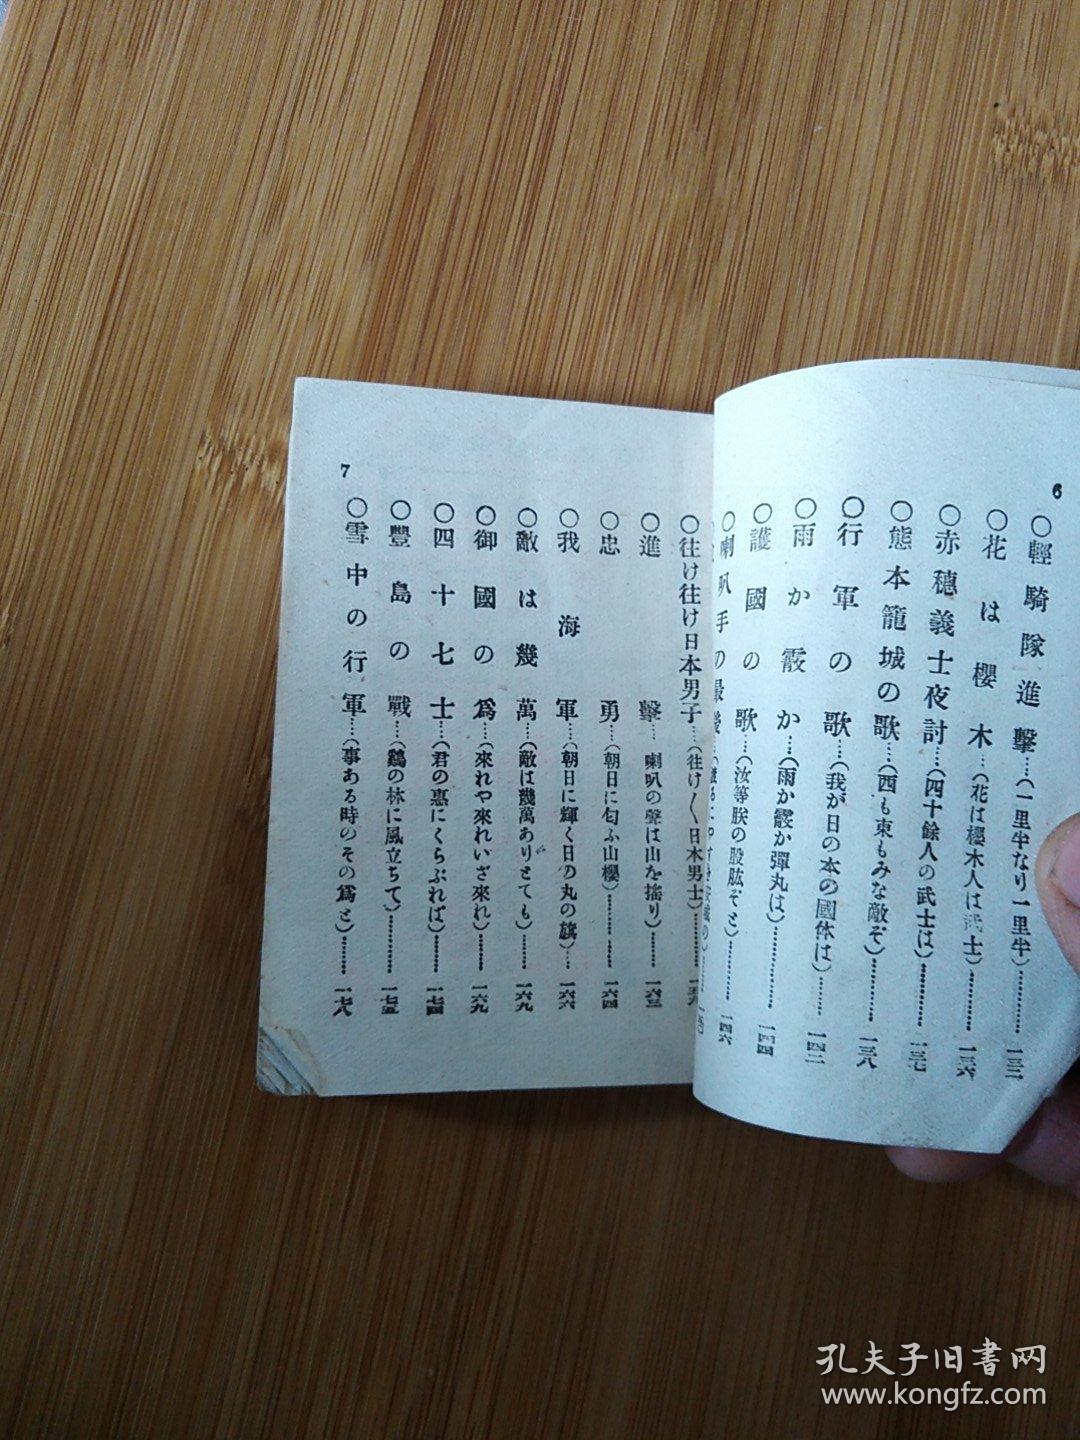 6
○輕騎隊進擊……(一里半なり一里半)…………一三二
○花は櫻木…(花は櫻木人は武士)…………一三六
○赤穗義士夜討……(四十餘人の武士は)…………一三七
○熊本籠城の歌……(西も東もみな敵ぞ)…………一三八
○行軍の歌……(我が日の本の國体は)……一四二
○雨か霰か……(雨か霰か彈丸は)…………一四四
○護國の歌…(汝等朕の股肱ぞと)…………一四六
○喇叭手の最後
7
○往け往け日本男子……(往け〱日本男士)…………
○進擊……喇叭の聲は山を搖り)…………一六三
○忠勇……(朝日に匂ふ山櫻)…………一六四
○我海軍……(朝日に輝く日の丸の旗)……一六六
○敵は幾萬……(敵は幾萬ありとても)…………一六九
○御國の爲……(來れや來れいざ來れ)…………一六九
○四十七士……(君の惠にくらぶれば)…………一七四
○豐島の戰……(鷄の林に風立ちて)…………一七五
○雪中の行軍……(事ある時のその爲と)…………一七八
孔夫子旧書网
www.kongfz.com